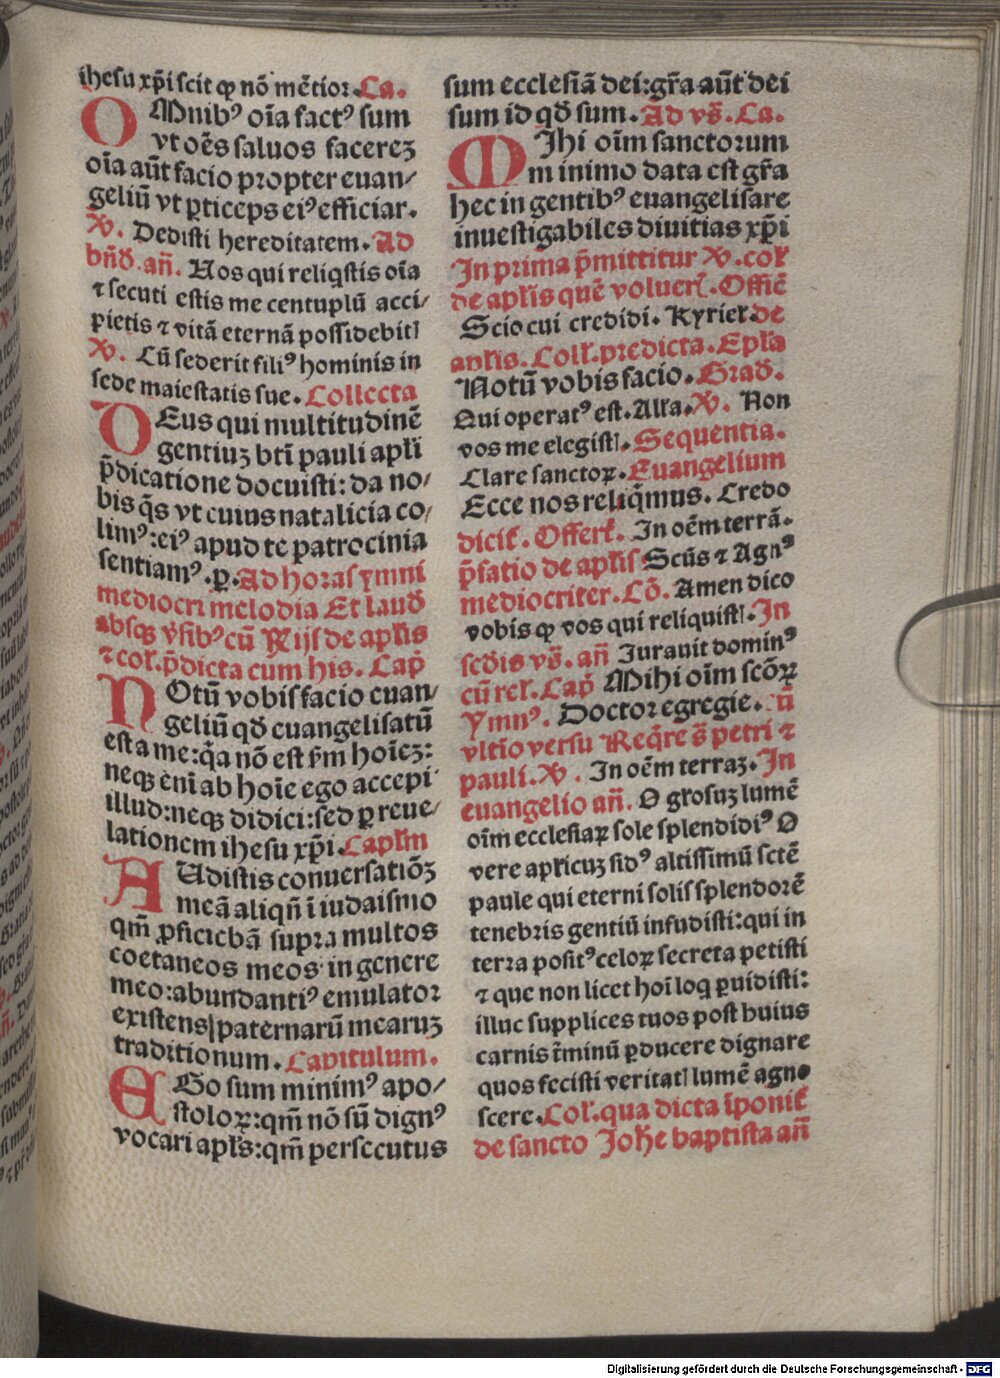 ihesu xp̄i scit ꝙ nō mētior. Ca.
OMnibꝰ oīa factꝰ sum
vt oēs saluos facereꝫ
oīa aūt facio propter euan/
geliū vt ꝑticeps eiꝰ efficiar.
Ꝟ. Dedisti hereditatem. Ad
bn̄d̄. an̄. Uos qui reliqstis oīa
⁊ secuti estis me centuplū acci/
pietis ⁊ vitā eternā possidebitꝭ
Ꝟ. Cū sederit filiꝰ hominis in
sede maiestatis sue. Collecta
DEus qui multitudinē
gentiuꝫ btī pauli apl̄i
p̄dicatione docuisti: da no/
bis q̄s vt cuius natalicia co/
limꝰ: eiꝰ apud te patrocinia
sentiamꝰ. ꝑ. Ad horas ymni
mediocri melodia Et laud̄
absqꝫ v̄sibꝰ cū Rijs de apl̄is
⁊ col̄. p̄dicta cum his. Cap̄
NOtū vobis facio euan/
geliū qd̄ euangelisatū
est a me: q̄a nō est s̄m hoīeꝫ:
neqꝫ eni̅ ab hoīe ego accepi
illud: neqꝫ didici: sed ꝑ reue/
lationem ihesu xp̄i. Capl̄m
AUdistis conuersatiōꝫ
meā aliqn̄ ī iudaismo
qm̄ ꝓficiebā supra multos
coetaneos meos in genere
meo: abundantiꝰ emulator
existens paternarū mearuꝫ
traditionum. Capitulum.
EGo sum minimꝰ apo/
stoloꝝ: qm̄ nō sū dignꝰ
vocari apl̄s: qm̄ persecutus
sum ecclesiā dei: gr̄a aūt dei
sum id qd̄ sum. Ad vs̄. Ca.
MIhi oīm sanctorum
minimo data est gr̄a
hec in gentibꝰ euangelisare
inuestigabiles diuitias xp̄i
In prima p̄mittitur Ꝟ. col̄
de apl̄is quē voluerꝭ. Offic̄
Scio cui credidi. Kyriel̄. de
apl̄is. Coll̄. predicta. Epl̄a
Notū vobis facio. Grad̄.
Qui operatꝰ est. All̄a. Ꝟ. Non
vos me elegistꝭ. Sequentia.
Clare sanctoꝝ. Euangelium
Ecce nos reliq̄mus. Credo
dicit̄. Offert̄. In oēm terrā.
p̄fatio de apl̄is Scūs ⁊ Agnꝰ
mediocriter. Cō. Amen dico
vobis ꝙ vos qui reliquistꝭ. In
scd̄is vs̄. an̄ Iurauit dominꝰ
cū rel̄. Cap̄ Mihi oīm scōꝝ
Ymnꝰ. Doctor egregie. cū
vltīo versu Req̄re s̄ petri ⁊
pauli. Ꝟ. In oēm terraꝫ. In
euangelio an̄. O gl̄osuꝫ lumē
oīm ecclesiaꝝ sole splendidiꝰ O
vere apl̄icuꝫ sidꝰ altissimū sctē
paule qui eterni solis splendorē
tenebris gentiū infudisti: qui in
terra positꝰ celoꝝ secreta petisti
⁊ que non licet hoī loq ꝑuidisti:
illuc supplices tuos post huius
carnis t̄minū ꝑducere dignare
quos fecisti veritatꝭ lumē agno
scere. Col̄. qua dicta īponit̄
de sancto Joh̄e baptista an̄
Digitalisierung gefördert durch die Deutsche Forschungsgemeinschaft - DFG